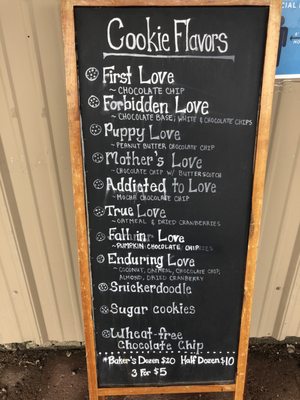 Cookie Flavors
First Love
~ CHOCOLATE CHIP
Forbidden Love
~ CHOCOLATE BASE, WHITE & CHOCOLATE CHIPS
Puppy Love
~ PEANUT BUTTER CHOCOLATE CHIP
Mother's Love
~ CHOCOLATE CHIP W/ BUTTERSCOTCH
Addicted to Love
~ MOCHA CHOCOLATE CHIP
True Love
~ OATMEAL & DRIED CRANBERRIES
Fall in Love
~ PUMPKIN CHOCOLATE CHIP
Enduring Love
~ COCONUT, OATMEAL, CHOCOLATE CHIP,
ALMOND, DRIED CRANBERRY
Snickerdoodle
Sugar cookies
Wheat-free
Chocolate Chip
*Baker's Dozen $20 Half Dozen $10
3 For $5